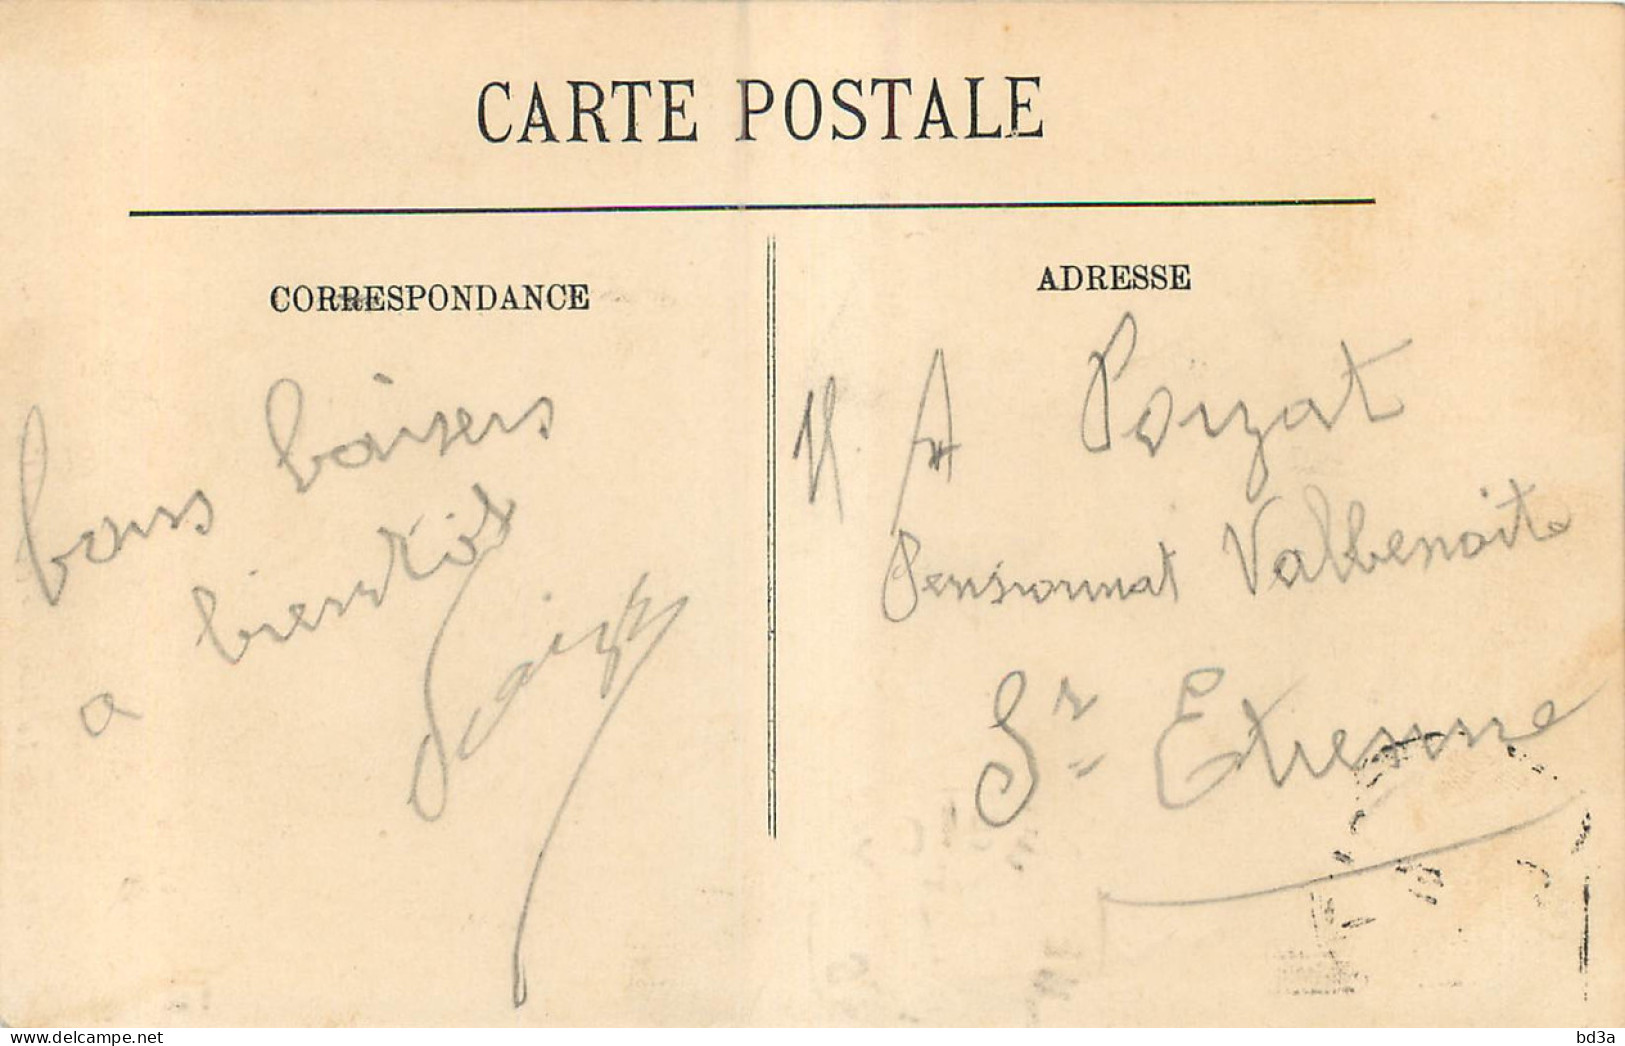 CARTE POSTALE
CORRESPONDANCE
bons baisers
a bientôt
ADRESSE
M. A Poizat
Pensionnat Valbenoite
St Etienne
website: delcampe.net
bd3a